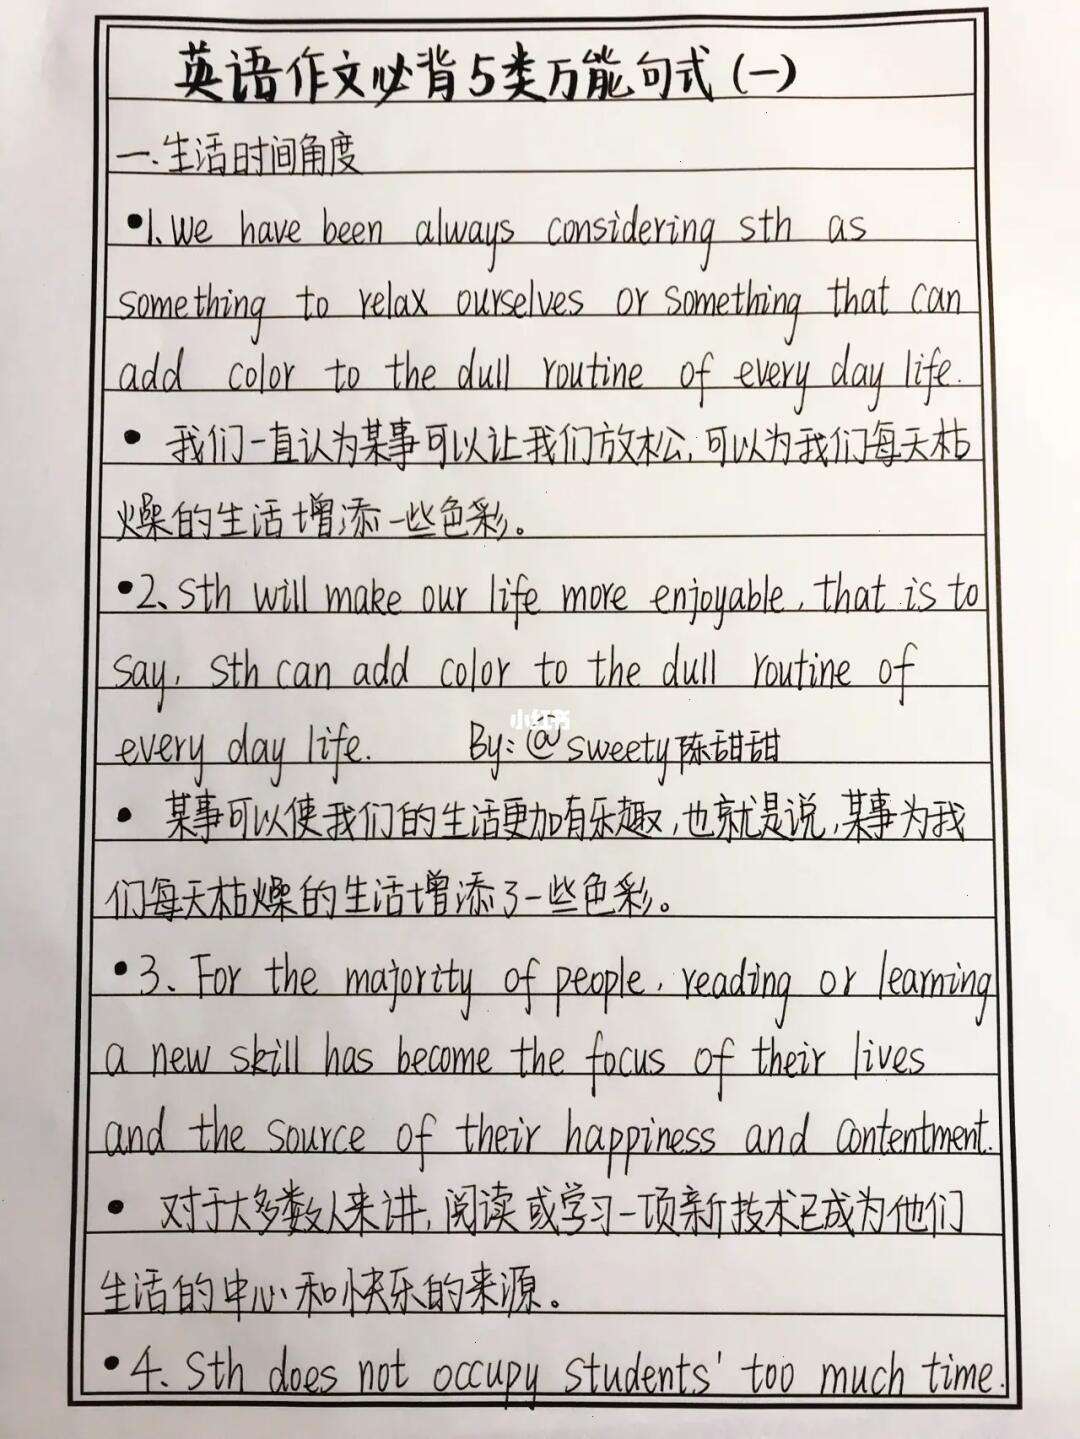 英语作文必背5类万能句式(一)
一.生活时间角度
•1.We have been always considering sth as
something to relax ourselves or something that can
add color to the dull routine of every day life.
• 我们一直认为某事可以让我们放松,可以为我们每天枯
燥的生活增添一些色彩。
•2、Sth will make our life more enjoyable, that is to
say, sth can add color to the dull routine of
小红书
every day life. By:@sweety陈甜甜
• 某事可以使我们的生活更加有乐趣,也就是说,某事为我
们每天枯燥的生活增添了一些色彩。
•3、For the majority of people, reading or learning
a new skill has become the focus of their lives
and the source of their happiness and contentment.
• 对于大多数人来讲,阅读或学习一项新技术已成为他们
生活的中心和快乐的来源。
•4、Sth does not occupy students' too much time.